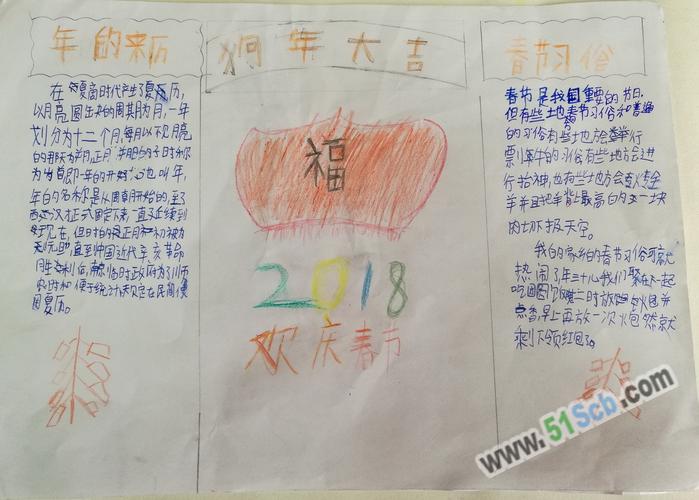 年的来历
在夏商时代产生了夏历,
以月亮圆出缺的周期为月,一年
划分为十二个月,每月以不见月亮
的那天为朔,正月朔日的子时称
为岁首即一年的开始也叫年,
年的名称是从周朝开始的,至了
西汉才正式固定下来,一直延续到
于现在,但时的正月初被为
无元旦,直到中国近代辛亥革命
胜利后,南京临时政府为了
农时和便于统计规定在民间使
用夏历。
狗年大吉
福
2018
欢庆春节
春节习俗
春节是我国重要的节日,
但有些地春节习俗和普通
的习俗有些地方会举行
票牛的习俗有些地方会进
行抬神,也有些地方会烤全
羊并且把羊背上最高的一块
肉切投天空。
我的家乡的春节习俗可就
热闹了年三十儿我们聚在一起
吃团圆饭晚二时放火包并
点香早上再放一次火包然就
剩下领红包了。
www.51Scb.com